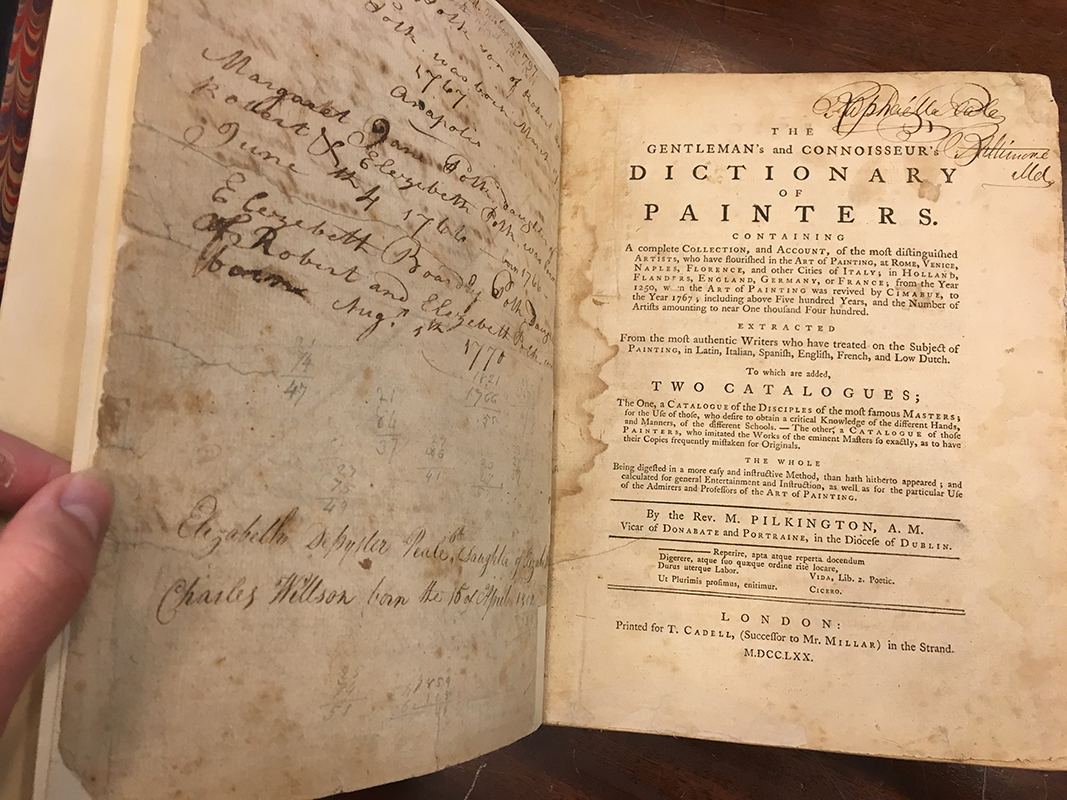 Polk son of Robert
Polk was born March
1767
Anapolis
Margaret Jane Polk daughter of
Robert & Elezebeth Polk was born
June the 4 1766
born 1766
Elezebeth Boardly Polk Daugh
of Robert and Elezebeth Polk
born Augt 1770
21
74
47
21
64
37
1821
1766
55
Elizabeth DePyster Peale, daughter of Elizabeth
Charles Willson born the 16 of April 1802
Raphaella Peale
Baltimore
Md
THE
GENTLEMAN's and CONNOISSEUR's
DICTIONARY
OF
PAINTERS.
CONTAINING
A complete COLLECTION, and ACCOUNT, of the moſt diſtinguiſhed
ARTISTS, who have flouriſhed in the ART of PAINTING, at ROME, VENICE,
NAPLES, FLORENCE, and other Cities of ITALY; in HOLLAND,
FLANDERS, ENGLAND, GERMANY, or FRANCE; from the Year
1250, when the ART of PAINTING was revived by CIMABUE, to
the Year 1767; including above Five hundred Years, and the Number of
Artiſts amounting to near One thouſand Four hundred.
EXTRACTED
From the moſt authentic Writers who have treated on the Subject of
PAINTING, in Latin, Italian, Spaniſh, Engliſh, French, and Low Dutch.
To which are added,
TWO CATALOGUES;
The One, a CATALOGUE of the DISCIPLES of the moſt famous MASTERS;
for the Uſe of thoſe, who deſire to obtain a critical Knowledge of the different Hands,
and Manners, of the different Schools. — The other, a CATALOGUE of thoſe
PAINTERS, who imitated the Works of the eminent Maſters ſo exactly, as to have
their Copies frequently miſtaken for Originals.
THE WHOLE
Being digeſted in a more eaſy and inſtructive Method, than hath hitherto appeared; and
calculated for general Entertainment and Inſtruction, as well as for the particular Uſe
of the Admirers and Profeſſors of the ART of PAINTING.
By the Rev. M. PILKINGTON, A. M.
Vicar of DONABATE and PORTRAINE, in the Dioceſe of DUBLIN.
——— Reperire, apta atque reperta docendum
Digerere, atque ſuo quæque ordine rite locare,
Durus uterque Labor. VIDA, Lib. 2. Poetic.
Ut Plurimis proſimus, enitimur. CICERO.
LONDON:
Printed for T. CADELL, (Succeſſor to Mr. MILLAR) in the Strand.
M.DCC.LXX.